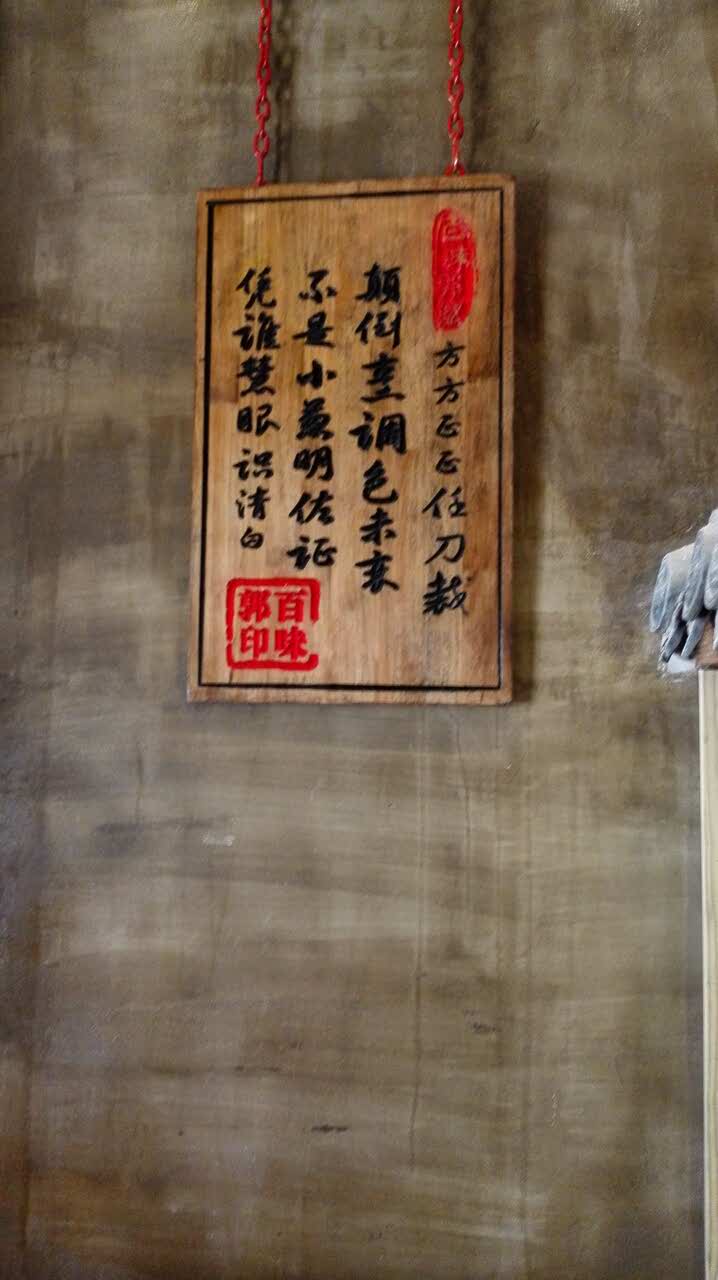 方方正正任刀裁
顛倒烹调色未衰
不是小葱明佐证
凭谁慧眼识清白
百味
郭印